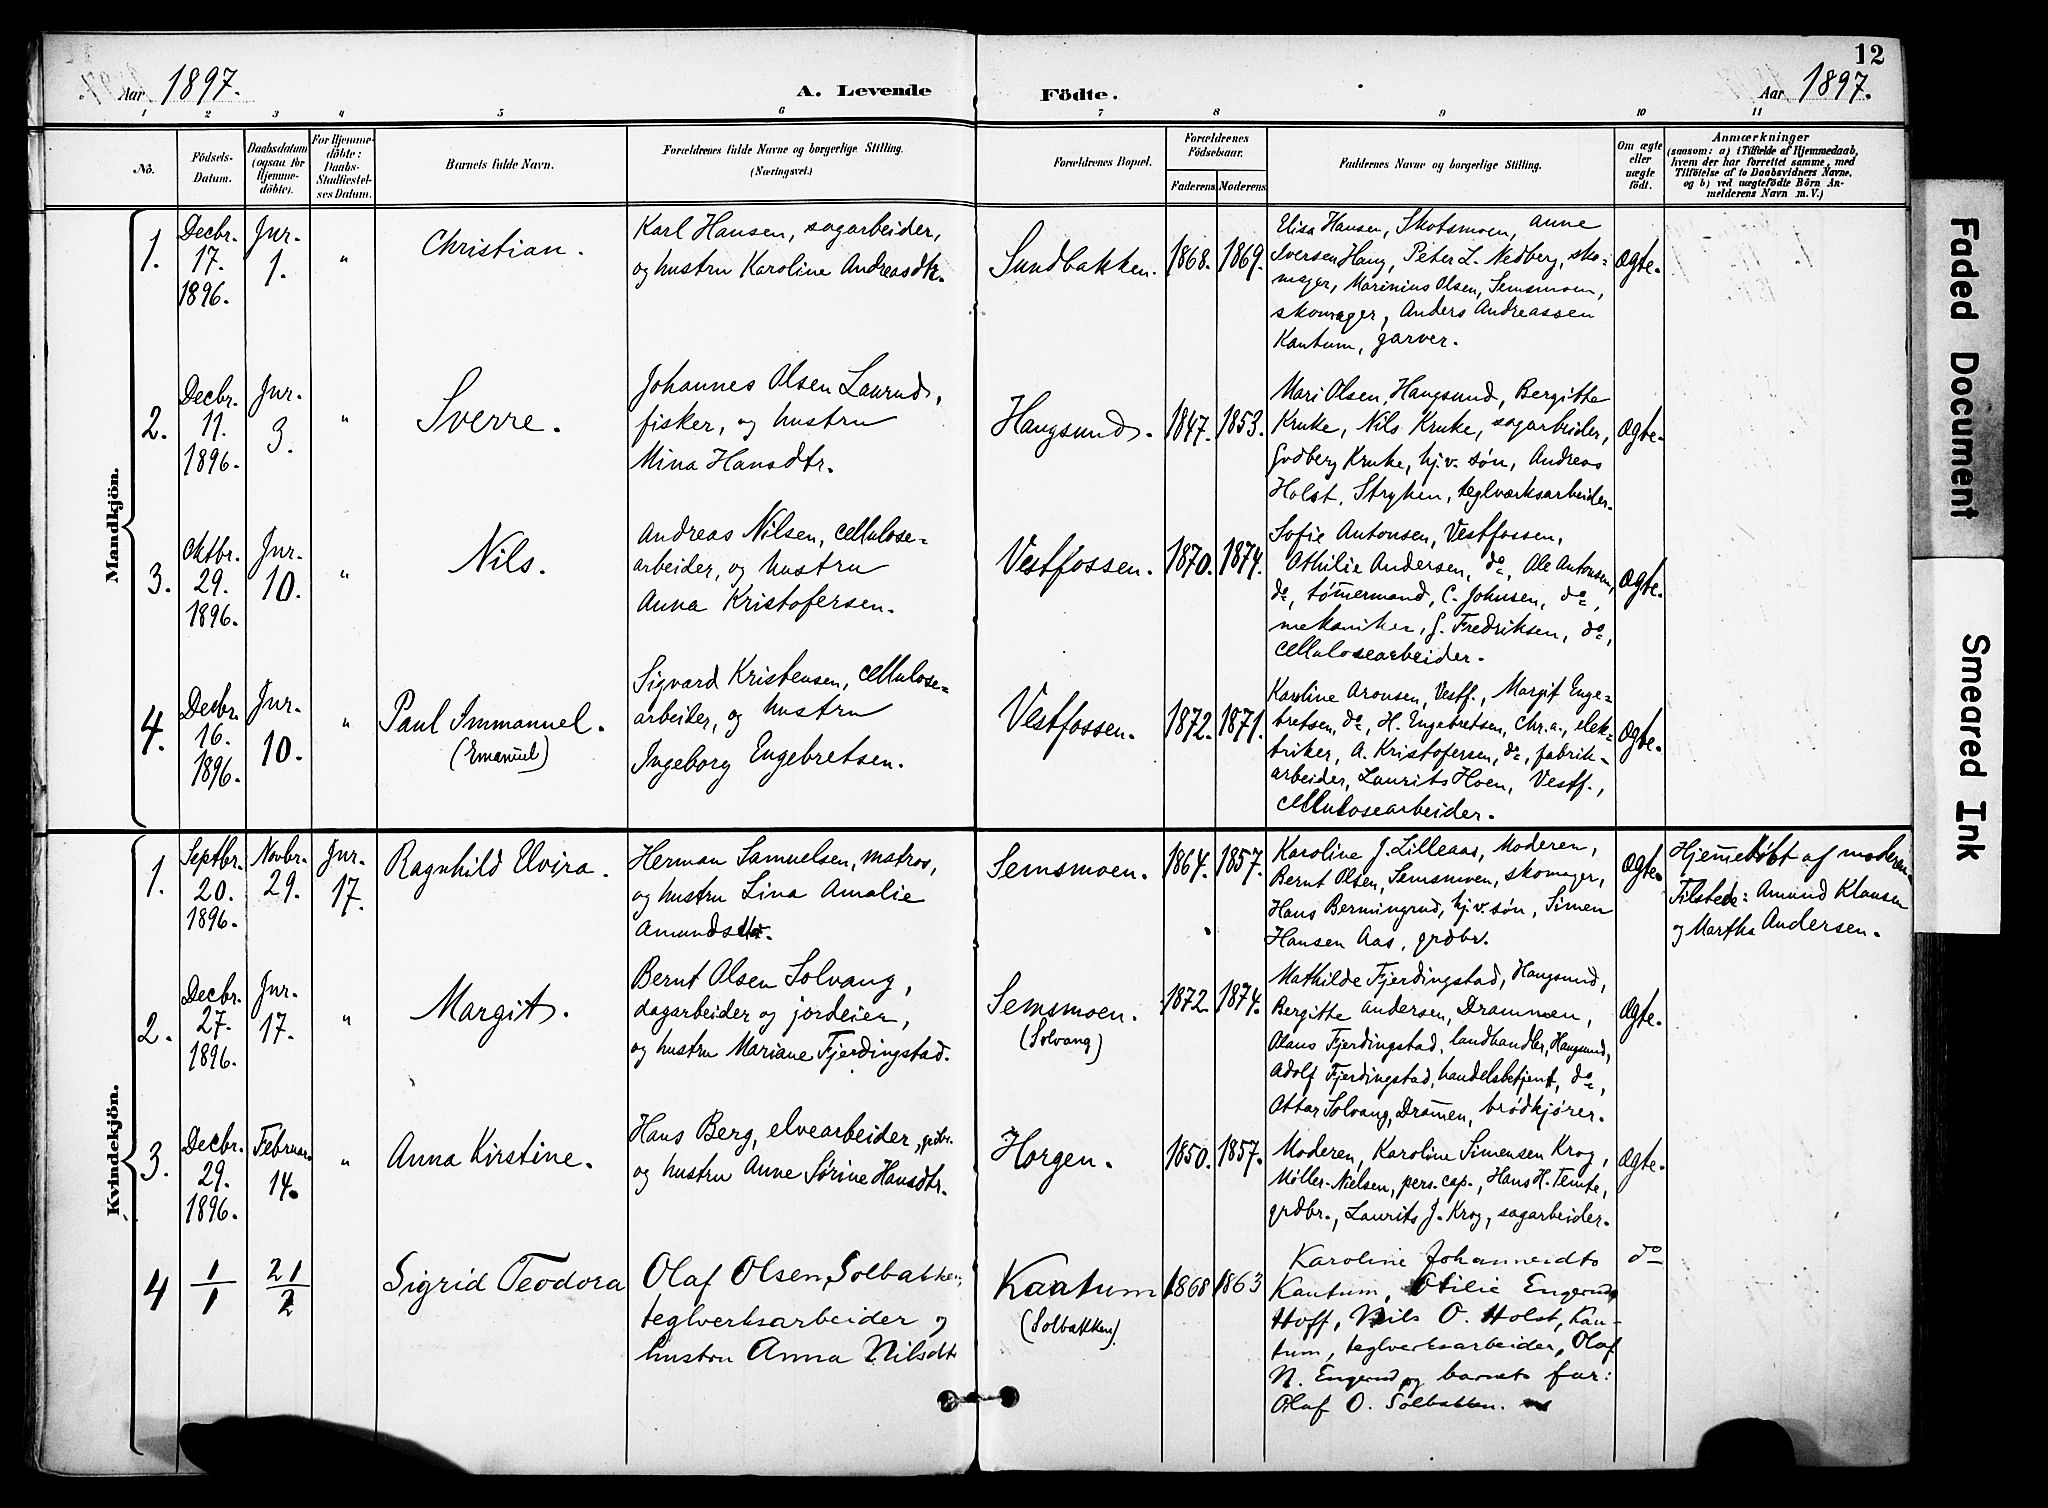 12
Aar 1897.
A. Levende
Födte.
Aar 1897.
1 2 3 4 5 6 7 8 9 10 11
No.
Födsels-
Datum.
Daabsdatum
(ogsaa for
Hjemme-
döbte).
For Hjemme-
döbte:
Daabs-
Stadfæstel-
ses Datum.
Barnets fulde Navn.
Forældrenes fulde Navne og borgerlige Stilling.
(Næringsvei.)
Forældrenes Bopæl.
Forældrenes
Födselsaar.
Faderens.
Moderens.
Faddernes Navne og borgerlige Stilling.
Om ægte
eller
uægte
födt.
Anmærkninger
(saasom: a) i Tilfælde af Hjemmedaab,
hvem der har forrettet samme, med
Tilföielse af to Daabsvidners Navne,
og b) ved uægtefödte Börn An-
melderens Navn m. V.)
Mandkjön.
1.
Decbr.
17.
1896.
Jnr.
1.
"
Christian.
Karl Hansen, sagarbeider,
og hustru Karoline Andreasdtr.
Sundbakken.
1868.
1869.
Elisa Hansen, Skotsmoen, Anne
Iversen Haug, Peter L. Nedberg, sko=
mager, Marinius Olsen, Semsmoen,
skomager, Anders Andreassen
Kantum, garver.
Ægte.
2.
Decbr.
11.
1896.
Jnr.
3.
"
Sverre.
Johannes Olsen Laurud,
fisker, og hustru
Mina Hansdtr.
Haugsund.
1847.
1853.
Mari Olsen, Haugsund, Bergitte
Kruke, Nils Kruke, sagarbeider,
Gudberg Kruke, hj.v. søn, Andreas
Holst, Stryken, teglværksarbeider.
Ægte.
3.
Oktbr.
29.
1896.
Jnr.
10.
"
Nils.
Andreas Nilsen, cellulose=
arbeider, og hustru
Anna Kristofersen.
Vestfossen.
1870.
1874.
Sofie Antonsen, Vestfossen,
Athilie Andersen, do, Ole Antonsen,
do, tømermand, C. Johnsen, do,
mekaniker, G. Fredriksen, do,
cellulosearbeider.
Ægte.
4.
Decbr.
16.
1896.
Jnr.
10.
"
Paul Immanuel.
(Emanuel)
Sigvard Kristensen, cellulose=
arbeider, og hustru
Ingeborg Engebretsen.
Vestfossen.
1872.
1871.
Karoline Aronsen, Vestf., Margit Enge=
bretsen, do, H. Engebretsen, Chr.a., elek=
triker, A. Kristofersen, do, fabrik=
arbeider, Laurits Hoen, Vestf.,
cellulosearbeider.
Ægte.
Kvindekjön.
1.
Septbr.
20.
1896.
Novbr.
29.
Jnr.
17.
Ragnhild Elvira.
Herman Samuelsen, matros,
og hustru Lina Amalie
Amundsdtr.
Semsmoen.
1864.
1857.
Karoline J. Lilleaas, Moderen,
Bernt Olsen, Semsmoen, skomager,
Hans Bermingrud, hj.v. søn, Simen
Hansen Aas, grdbr.
Ægte.
Hjemedøbt af moderen.
Tilstede: Amund Klausen
og Martha Andersen.
2.
Decbr.
27.
1896.
Jnr.
17.
"
Margit.
Bernt Olsen Solvang,
dagarbeider og jordeier,
og hustru Mariane Fjerdingstad.
Semsmoen.
(Solvang)
1872
1874.
Mathilde Fjerdingstad, Haugsund,
Bergitte Andersen, Drammen,
Olaus Fjerdingstad, landhandler, Haugsund,
Adolf Fjerdingstad, handelsbetjent, do,
Ottar Solvang, Dramen, brødkjører.
Ægte.
3.
Decbr.
29.
1896.
Februar.
14.
"
Anna Kirstine.
Hans Berg, elvearbeider, grdbr.
og hustru Anne Sørine Hansdtr.
Horgen.
1850.
1857.
Moderen, Karoline Simensen Krog,
Møller-Nielsen, pers. cap., Hans H. Temte,
grdbr., Laurits J. Krog, sagarbeider.
Ægte.
4
1/1
21/2
Sigrid Teodora
Olaf Olsen Solbakken,
teglverksarbeider og
hustru Anna Nilsdtr
Kantum
(Solbakken).
1868
1863
Karoline Johannesdtr
Kantum, Otilie Engerud,
Hoff, Nils O. Holst, Kan-
tum, teglverksarbeider, Olaf
N. Engerud og barnets far:
Olaf O. Solbakken.
do
Faded Document
Smeared Ink